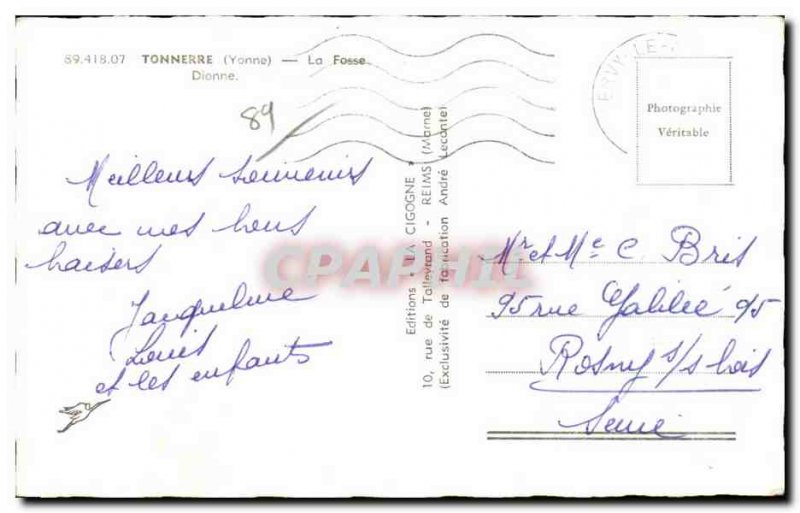 89.418.07 TONNERRE (Yonne) — La Fosse
Dionne.
89
Meilleurs souvenirs
avec mes bons
baisers
Jacqueline
Louis
et les enfants
Editions "LA CIGOGNE"
10, rue de Talleyrand - REIMS (Marne)
(Exclusivité de fabrication André Leconte)
ERVY-LE-
Photographie
Véritable
Mr et Me C. Bris
95 rue Galilée 95
Rosny s/s bois
Seine
CPARPHIL